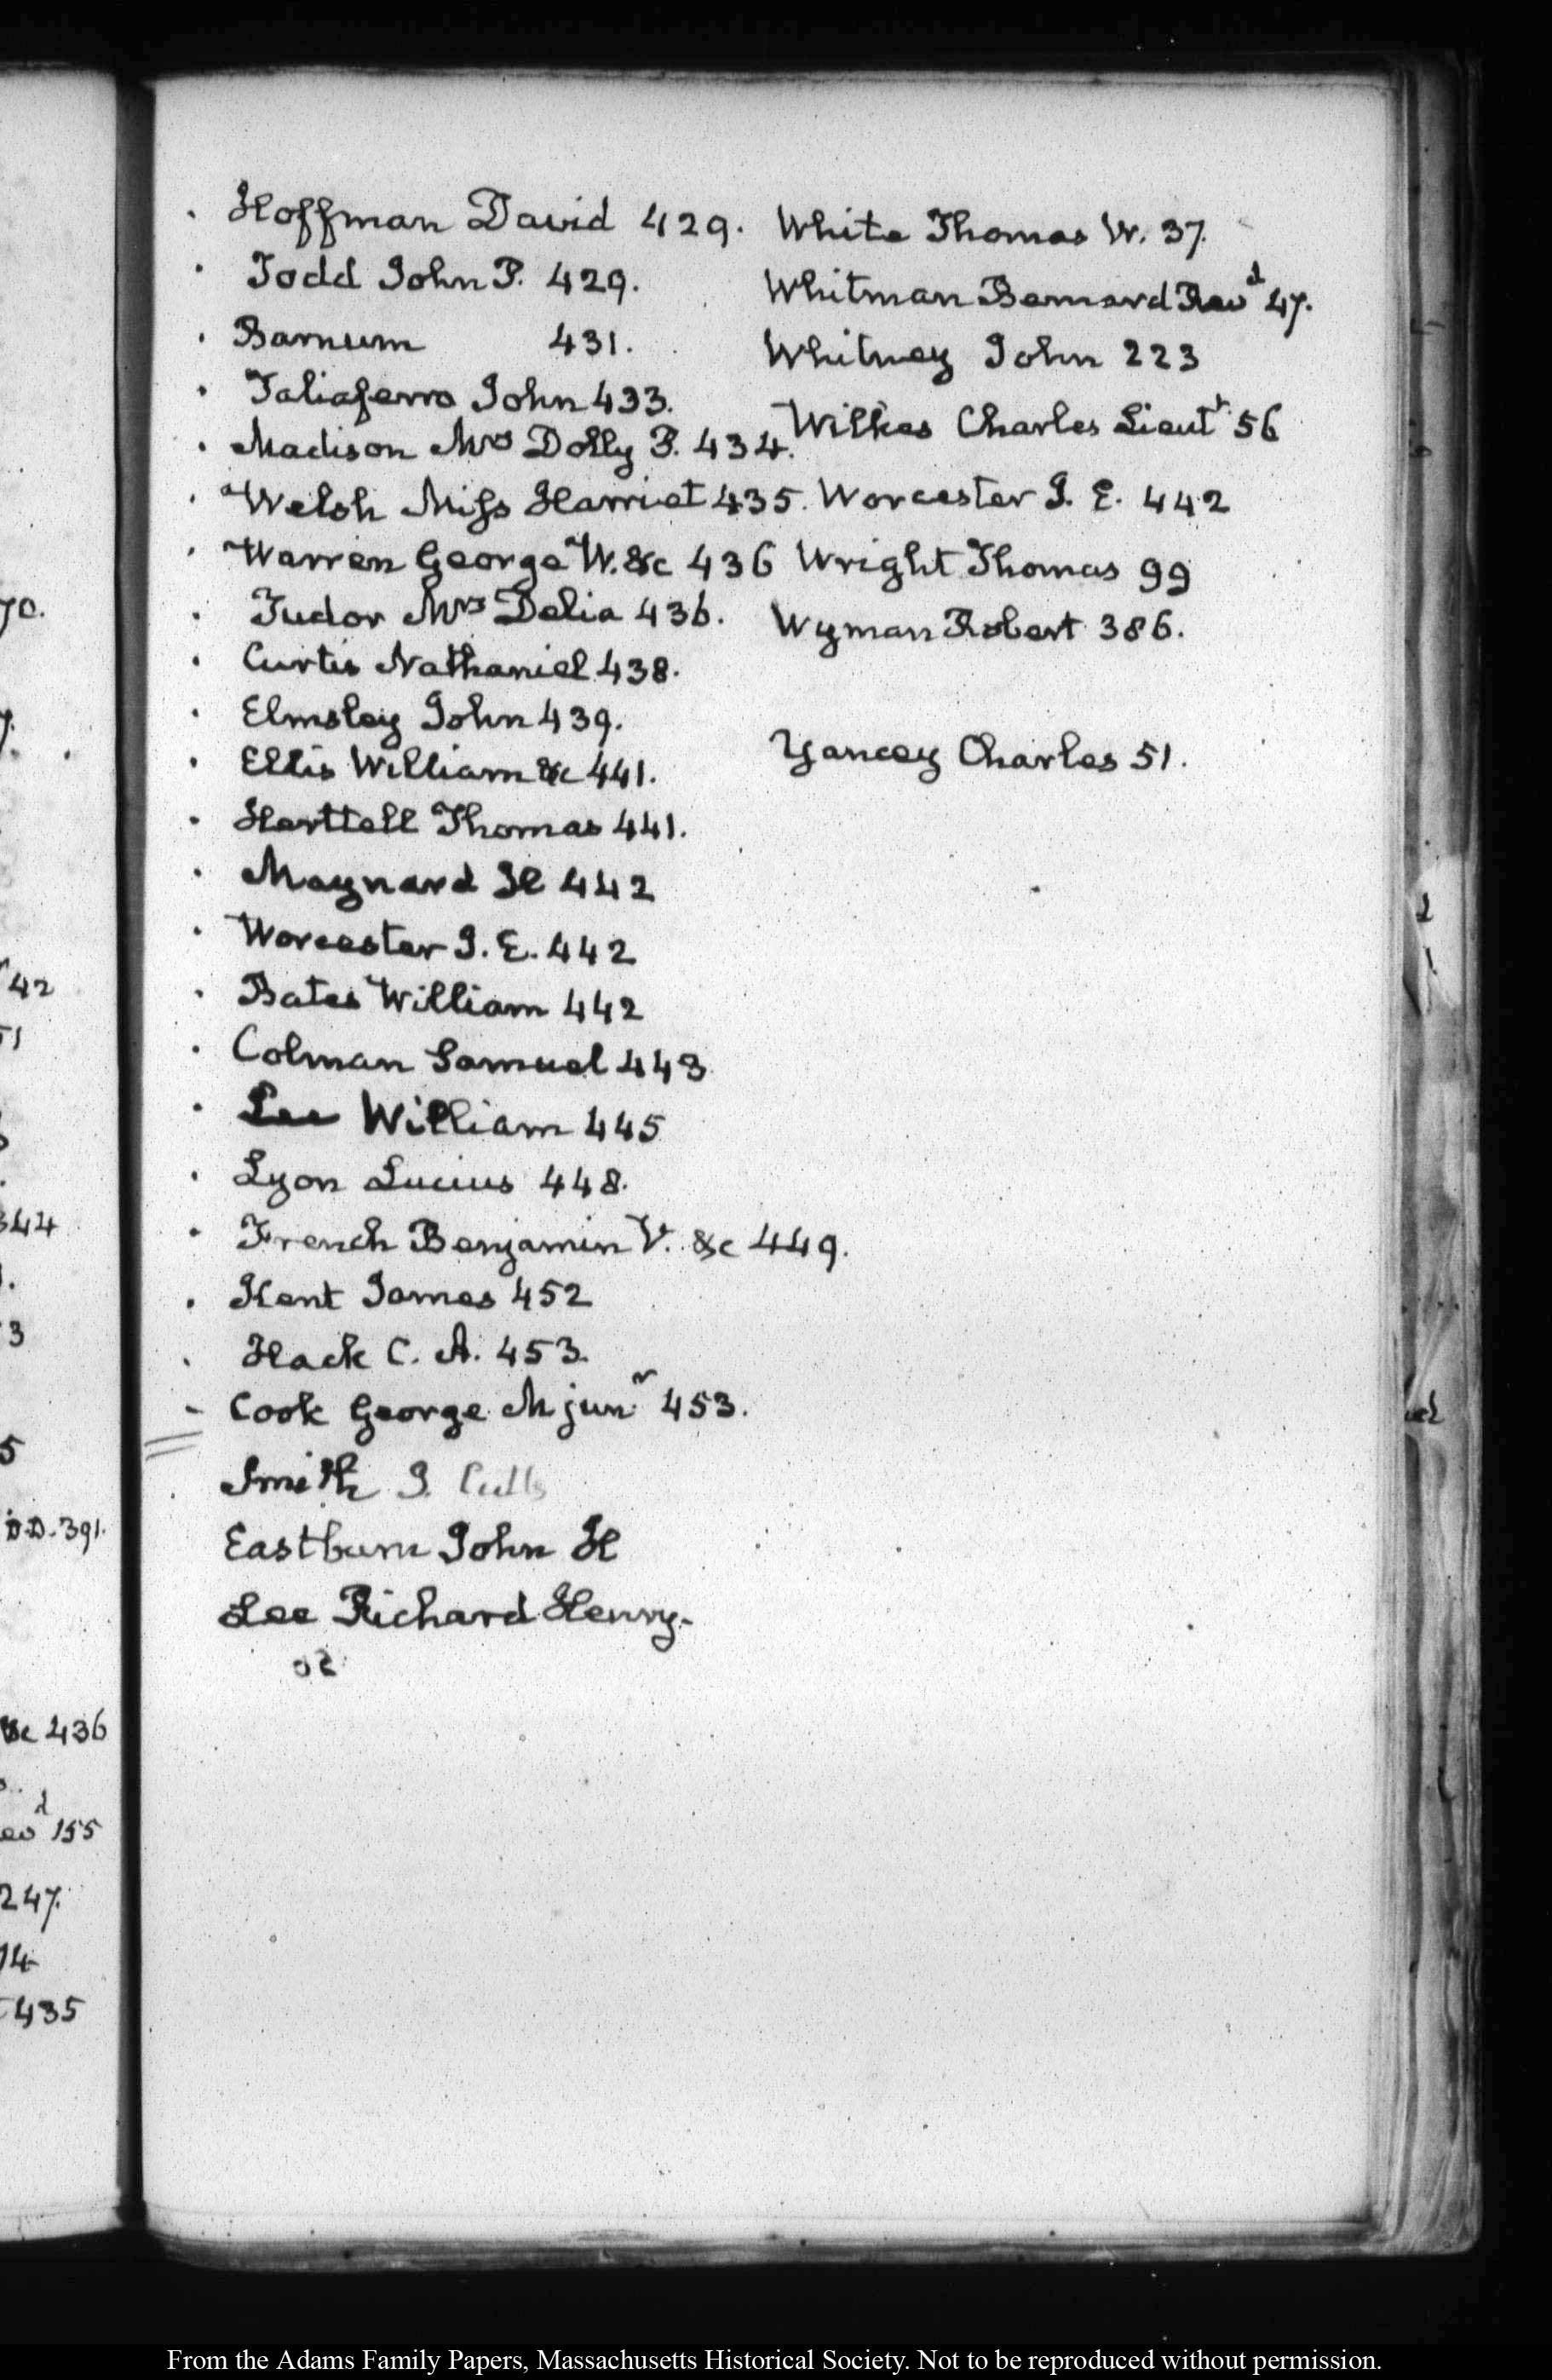 Hoffman David 429.
Todd John P. 429.
Barnum 431.
Taliaferro John 433.
Madison Mrs Dolly P. 434.
Welsh Miss Harriet 435.
Warren George W. &c 436
Tudor Mrs Delia 436.
Curtis Nathaniel 438.
Elmsley John 439.
Ellis William &c 441.
Herttell Thomas 441.
Maynard H 442
Worcester J. E. 442
Bates William 442
Colman Samuel 443
Lee William 445
Lyon Lucius 448.
French Benjamin V. &c 449.
Kent James 452
Hack C. A. 453.
Cook George M junr 453.
Smith J. Cutts
Eastburn John H
Lee Richard Henry.
White Thomas W. 37.
Whitman Bernard Revd 47.
Whitney John 223
Wilkes Charles Lieut 56
Worcester J. E. 442
Wright Thomas 99
Wyman Robert 386.
Yancey Charles 51.
42
344
3
5
D.D. 391.
&c 436
155
247.
14
435
From the Adams Family Papers, Massachusetts Historical Society. Not to be reproduced without permission.